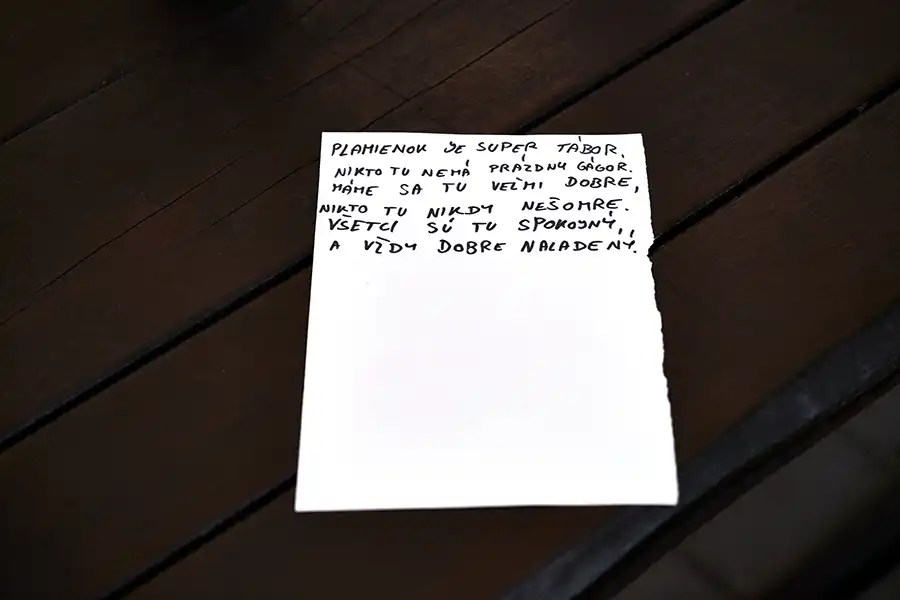 PLAMIENOK JE SUPER TÁBOR,
NIKTO TU NEMÁ PRÁZDNY GÁGOR.
MÁME SA TU VEĽMI DOBRE,
NIKTO TU NIKDY NEŠOMRE.
VŠETCI SÚ TU SPOKOJNÝ,
A VŽDY DOBRE NALADENÝ.